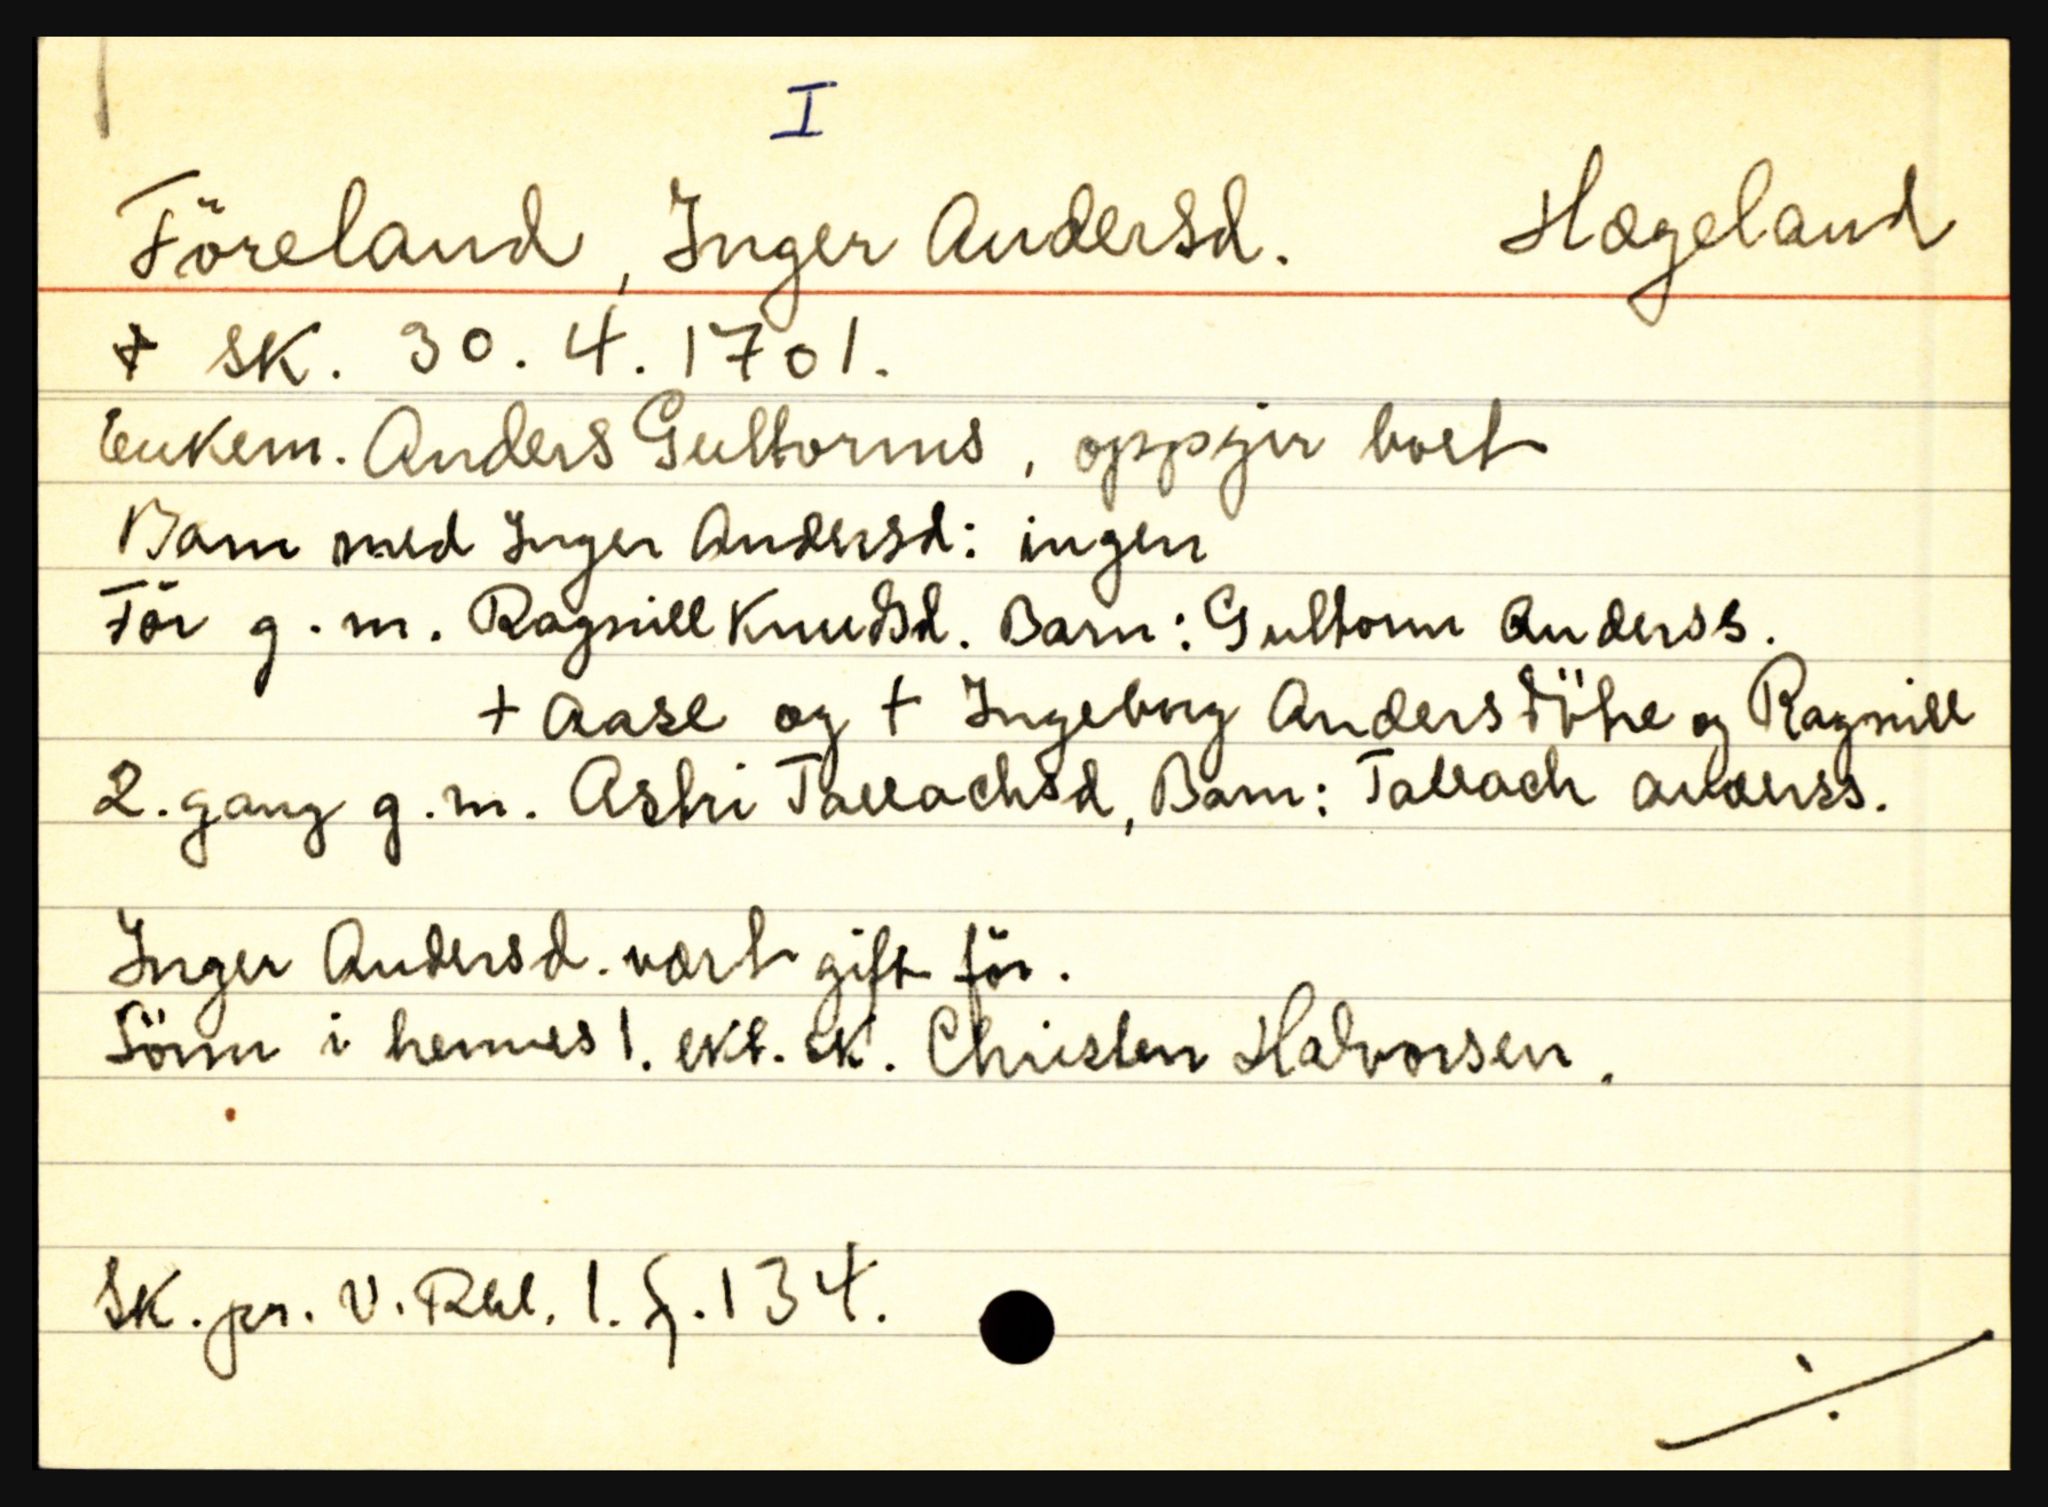 I
Föreland, Inger Andersd. Hægeland
+ sk. 30. 4. 1701.
Enkem. Anders Guttorms, oppgir boet
Barn med Inger Andersd: ingen
För g. m. Ragnill Knudsd. Barn: Guttorm Anderss.
+ Aase og + Ingeborg Andersdötre og Ragnill
2. gang g. m. Astri Tallachsd, Barn: Tallach Anderss.
Inger Andersd. vært gift för.
Sönn i hennes 1. ekt. sk. Christen Halvorsen.
Sk. pr. V. Rbl. 1. f. 134.